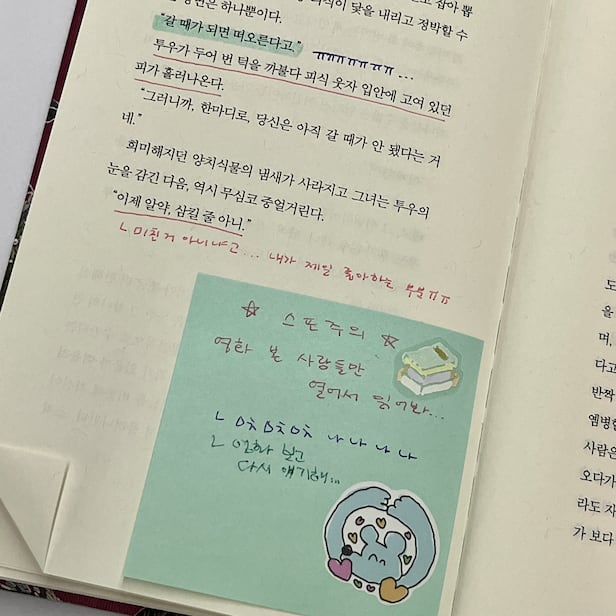 닻을 내리고 정박할 수
하나뿐이다.
“갈 때가 되면 떠오른다고.”
ㅠㅠㅠㅠㅠㅠㅠ...
투우가 두어 번 턱을 까불다 피식 웃자 입안에 고여 있던
피가 흘러나온다.
“그러니까, 한마디로, 당신은 아직 갈 때가 안 됐다는 거
네.”
희미해지던 양치식물의 냄새가 사라지고 그녀는 투우의
눈을 감긴 다음, 역시 무심코 중얼거린다.
“이제 알약, 삼킬 줄 아니.”
ㄴ미친거 아니냐고... 내가 제일 좋아하는 부분ㅠㅠ
☆ 스포주의 ☆
영화 본 사람들만
열어서 읽어봐...
ㄴ 마차 마차 마차 나 나 나 나
ㄴ 영화 보고
다시 얘기해...
도
을
며,
다고
반짝
엠병할
사람은
오다가
라도 자
가 보다